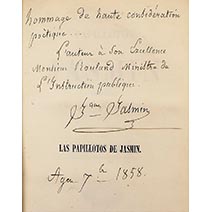 hommage de haute considération
poëtique...
L'auteur à Son Excellence
Monsieur Rouland Ministre de
L'Instruction publique.
Jasmin
LAS PAPILLOTOS DE JASMIN.
Agen 7bre 1858.